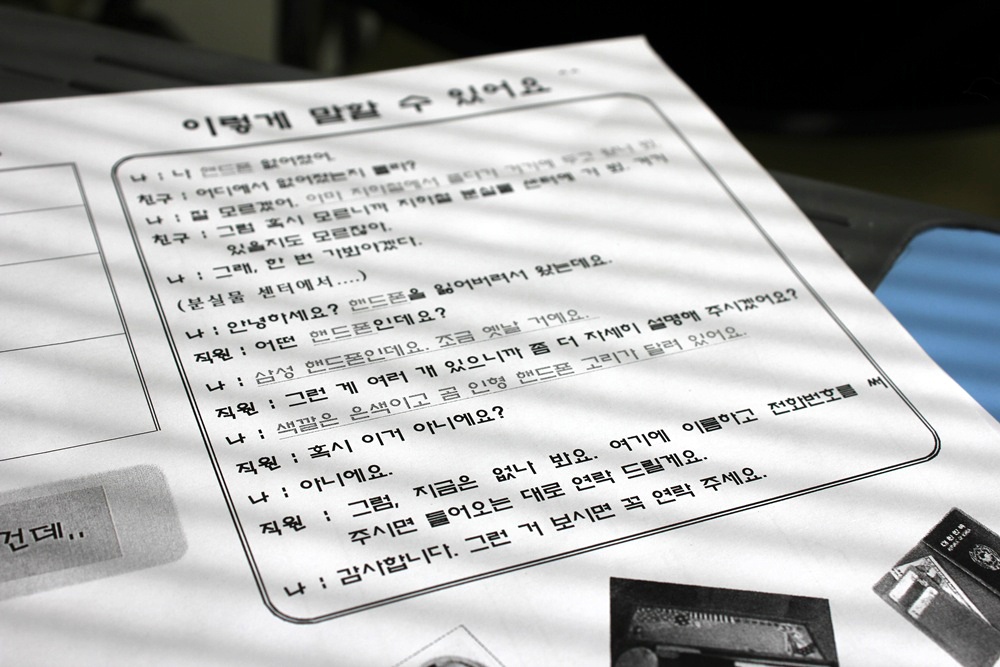 이렇게 말할 수 있어요
나 : 나 핸드폰 잃어렸어.
친구 : 어디에서 잃어렸는지 몰라?
나 : 잘 모르겠어. 아마 지하철에서 졸다가 거기에 두고 왔나 봐.
친구 : 그럼 혹시 모르니까 지하철 분실물 센터에 가 봐. 거기
있을지도 모르잖아.
나 : 그래, 한 번 가봐야겠다.
(분실물 센터에서....)
나 : 안녕하세요? 핸드폰을 잃어버려서 왔는데요.
직원 : 어떤 핸드폰인데요?
나 : 삼성 핸드폰인데요. 조금 옛날 거예요.
직원 : 그런 게 여러 개 있으니까 좀 더 자세히 설명해 주시겠어요?
나 : 색깔은 은색이고 곰 인형 핸드폰 고리가 달려 있어요.
직원 : 혹시 이거 아니에요?
나 : 아니에요.
직원 : 그럼, 지금은 없나 봐요. 여기에 이름하고 전화번호를 써
주시면 들어오는 대로 연락 드릴게요.
나 : 감사합니다. 그런 거 보시면 꼭 연락 주세요.
건데,,
대한민국